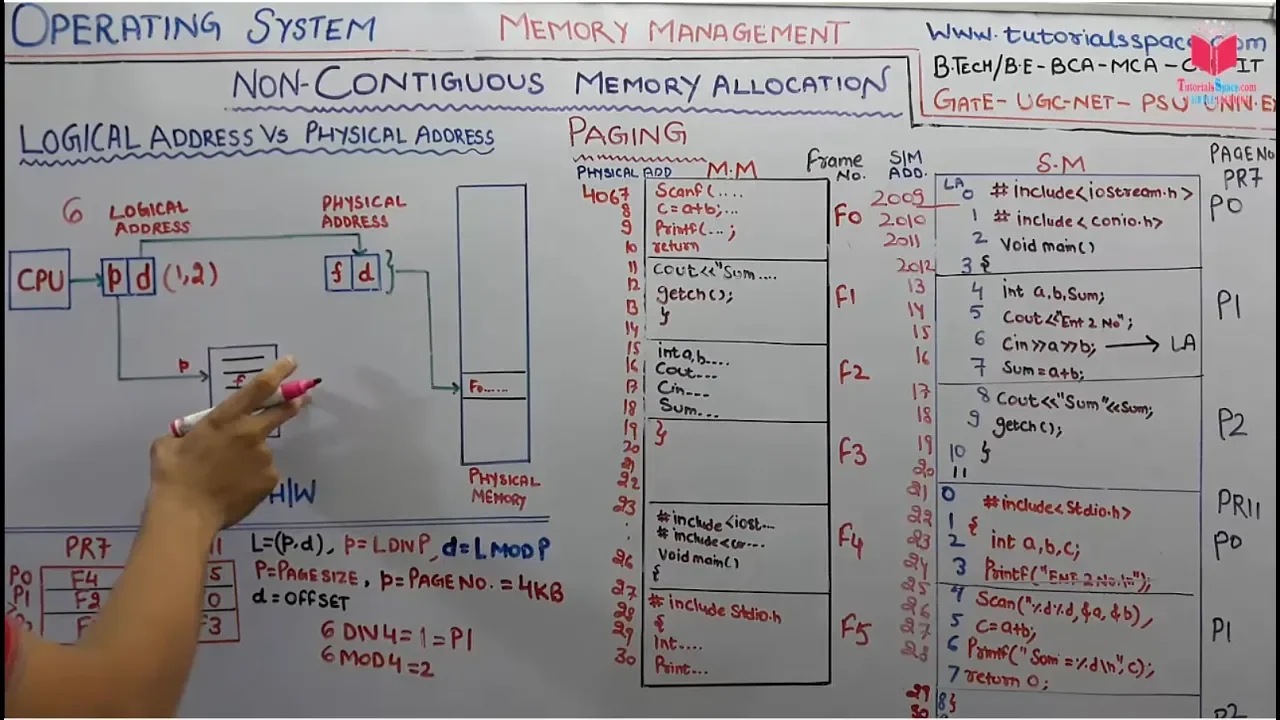 OPERATING SYSTEM
MEMORY MANAGEMENT
www.tutorialsspace.com
B.TECH/B.E-BCA-MCA- IT
TutorialsSpace.com
GATE- UGC-NET- PSU UNI.E
NON-CONTIGUOUS MEMORY ALLOCATION
LOGICAL ADDRESS VS PHYSICAL ADDRESS
6 LOGICAL ADDRESS
PHYSICAL ADDRESS
CPU
p d (1,2)
f d
p
f
Fo.....
H/W
PHYSICAL MEMORY
PR7
11
P0 F4 5
P1 F2 0
F3
L=(p,d), p=LDIVP, d=LMODP
P=PAGESIZE, p=PAGE NO. = 4KB
d=OFFSET
6 DIV 4=1=P1
6 MOD 4=2
PAGING
PHYSICAL ADD M.M Frame No.
4067 Scanf(....
8 c=a+b;...
9 Printf(...;
10 return
F0
11 cout<<"Sum....
12 getch();
13 }
14
F1
15 int a,b....
16 Cout...
17 Cin...
18 Sum...
F2
19 }
20
21
22
F3
23 #include<iost...
. #include<co-...
. Void main()
26 {
F4
27 #include Stdio.h
28 {
29 Int....
30 Print...
F5
S/M ADD. S.M PAGE NO
PR7
LA
2009 0 #include<iostream.h>
2010 1 #include<conio.h>
2011 2 Void main()
2012 3 {
P0
13 4 int a,b,Sum;
14 5 Cout<<"Ent 2 No";
15 6 Cin>>a>>b; → LA
16 7 Sum=a+b;
P1
17 8 Cout<<"Sum"<<Sum;
18 9 getch();
19 10 }
20 11
P2
PR11
21 0 #include<Stdio.h>
22 1 {
23 2 int a,b,c;
24 3 Printf("Ent 2 No.\n");
P0
25 4 Scan("%d%d,&a,&b),
26 5 c=a+b;
27 6 Printf("Som=%d\n",c);
28 7 return 0;
P1
29 8 }
30
P2